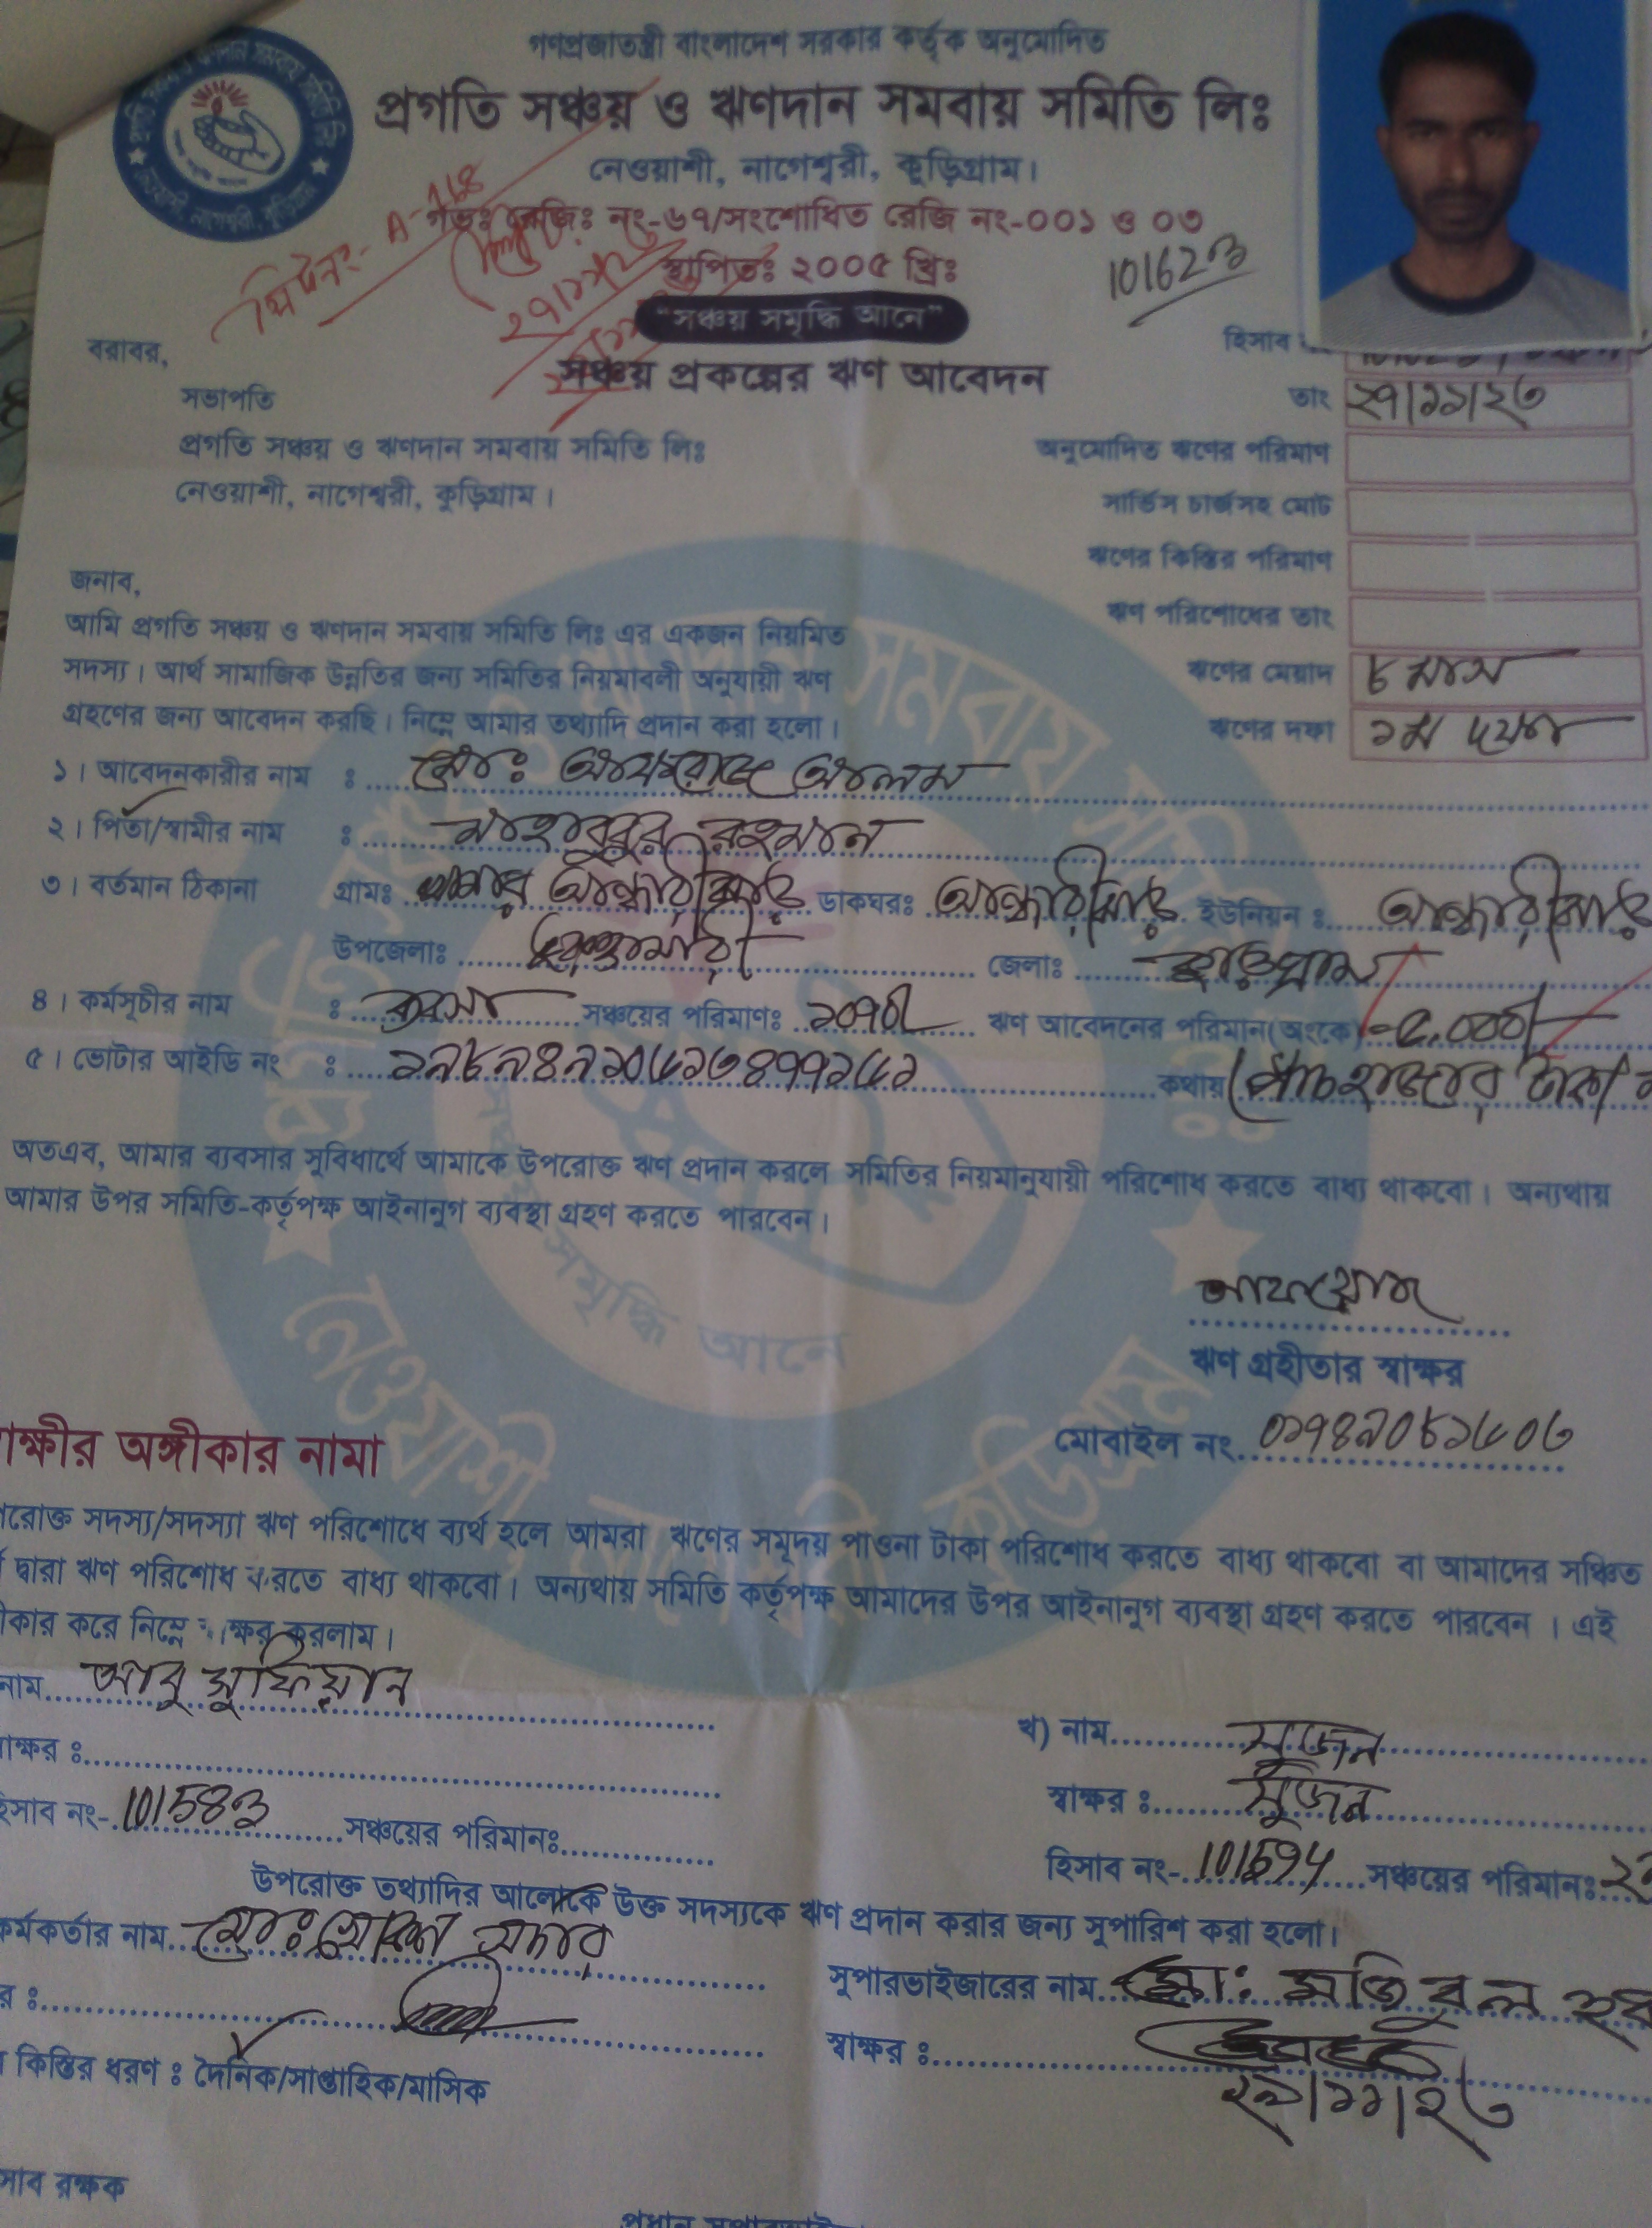 গণপ্রজাতন্ত্রী বাংলাদেশ সরকার কর্তৃক অনুমোদিত
প্রগতি সঞ্চয় ও ঋণদান সমবায় সমিতি লিঃ
নেওয়াশী, নাগেশ্বরী, কুড়িগ্রাম।
গভঃ রেজিঃ নং-৬৭/সংশোধিত রেজি নং-০০১ ও ০৩
স্থাপিতঃ ২০০৫ খ্রিঃ
"সঞ্চয় সমৃদ্ধি আনে"
সঞ্চয় প্রকল্পের ঋণ আবেদন
বরাবর,
সভাপতি
প্রগতি সঞ্চয় ও ঋণদান সমবায় সমিতি লিঃ
নেওয়াশী, নাগেশ্বরী, কুড়িগ্রাম।
হিসাব
তাং ২৭/১১/২৩
অনুমোদিত ঋণের পরিমাণ
সার্ভিস চার্জসহ মোট
ঋণের কিস্তির পরিমাণ
ঋণ পরিশোধের তাং
ঋণের মেয়াদ ৮ মাস
ঋণের দফা ১ম দফা
জনাব,
আমি প্রগতি সঞ্চয় ও ঋণদান সমবায় সমিতি লিঃ এর একজন নিয়মিত
সদস্য। আর্থ সামাজিক উন্নতির জন্য সমিতির নিয়মাবলী অনুযায়ী ঋণ
গ্রহণের জন্য আবেদন করছি। নিম্নে আমার তথ্যাদি প্রদান করা হলো।
১। আবেদনকারীর নাম : মোঃ আফরোজ আলম
২। পিতা/স্বামীর নাম : মাহাবুবুর রহমান
৩। বর্তমান ঠিকানা গ্রামঃ খামার আন্ধারীঝাড় ডাকঘরঃ আন্ধারীঝাড় ইউনিয়ন : আন্ধারীঝাড়
উপজেলাঃ ভুরুঙ্গামারী জেলাঃ কুড়িগ্রাম
৪। কর্মসূচীর নাম : সঞ্চয়ের পরিমাণঃ ১০৭০/ ঋণ আবেদনের পরিমান(অংকে) =৫,০০০/
৫। ভোটার আইডি নং : ১৯৮৯৪৯১০৬১৩৪৭৭১৬১ কথায় (পাঁচ হাজার টাকা
অতএব, আমার ব্যবসার সুবিধার্থে আমাকে উপরোক্ত ঋণ প্রদান করলে সমিতির নিয়মানুযায়ী পরিশোধ করতে বাধ্য থাকবো। অন্যথায়
আমার উপর সমিতি-কর্তৃপক্ষ আইনানুগ ব্যবস্থা গ্রহণ করতে পারবেন।
আফরোজ
ঋণ গ্রহীতার স্বাক্ষর
মোবাইল নং. ০১৭৪৯০৮১৬০৩
ক্ষীর অঙ্গীকার নামা
রোক্ত সদস্য/সদস্যা ঋণ পরিশোধে ব্যর্থ হলে আমরা ঋণের সমূদয় পাওনা টাকা পরিশোধ করতে বাধ্য থাকবো বা আমাদের সঞ্চিত
দ্বারা ঋণ পরিশোধ করতে বাধ্য থাকবো। অন্যথায় সমিতি কর্তৃপক্ষ আমাদের উপর আইনানুগ ব্যবস্থা গ্রহণ করতে পারবেন। এই
কার করে নিম্নে ক্ষর করলাম।
নাম আবু সুফিয়ান
ক্ষর :
হিসাব নং- 101583 সঞ্চয়ের পরিমানঃ
খ) নাম সুজন
স্বাক্ষর : সুজন
হিসাব নং- 101594 সঞ্চয়ের পরিমানঃ
উপরোক্ত তথ্যাদির আলোকে উক্ত সদস্যকে ঋণ প্রদান করার জন্য সুপারিশ করা হলো।
কর্মকর্তার নাম মোঃ
র :
সুপারভাইজারের নাম মোঃ
স্বাক্ষর :
২৯/১১/২৩
কিস্তির ধরণ : দৈনিক/সাপ্তাহিক/মাসিক
সাব রক্ষক